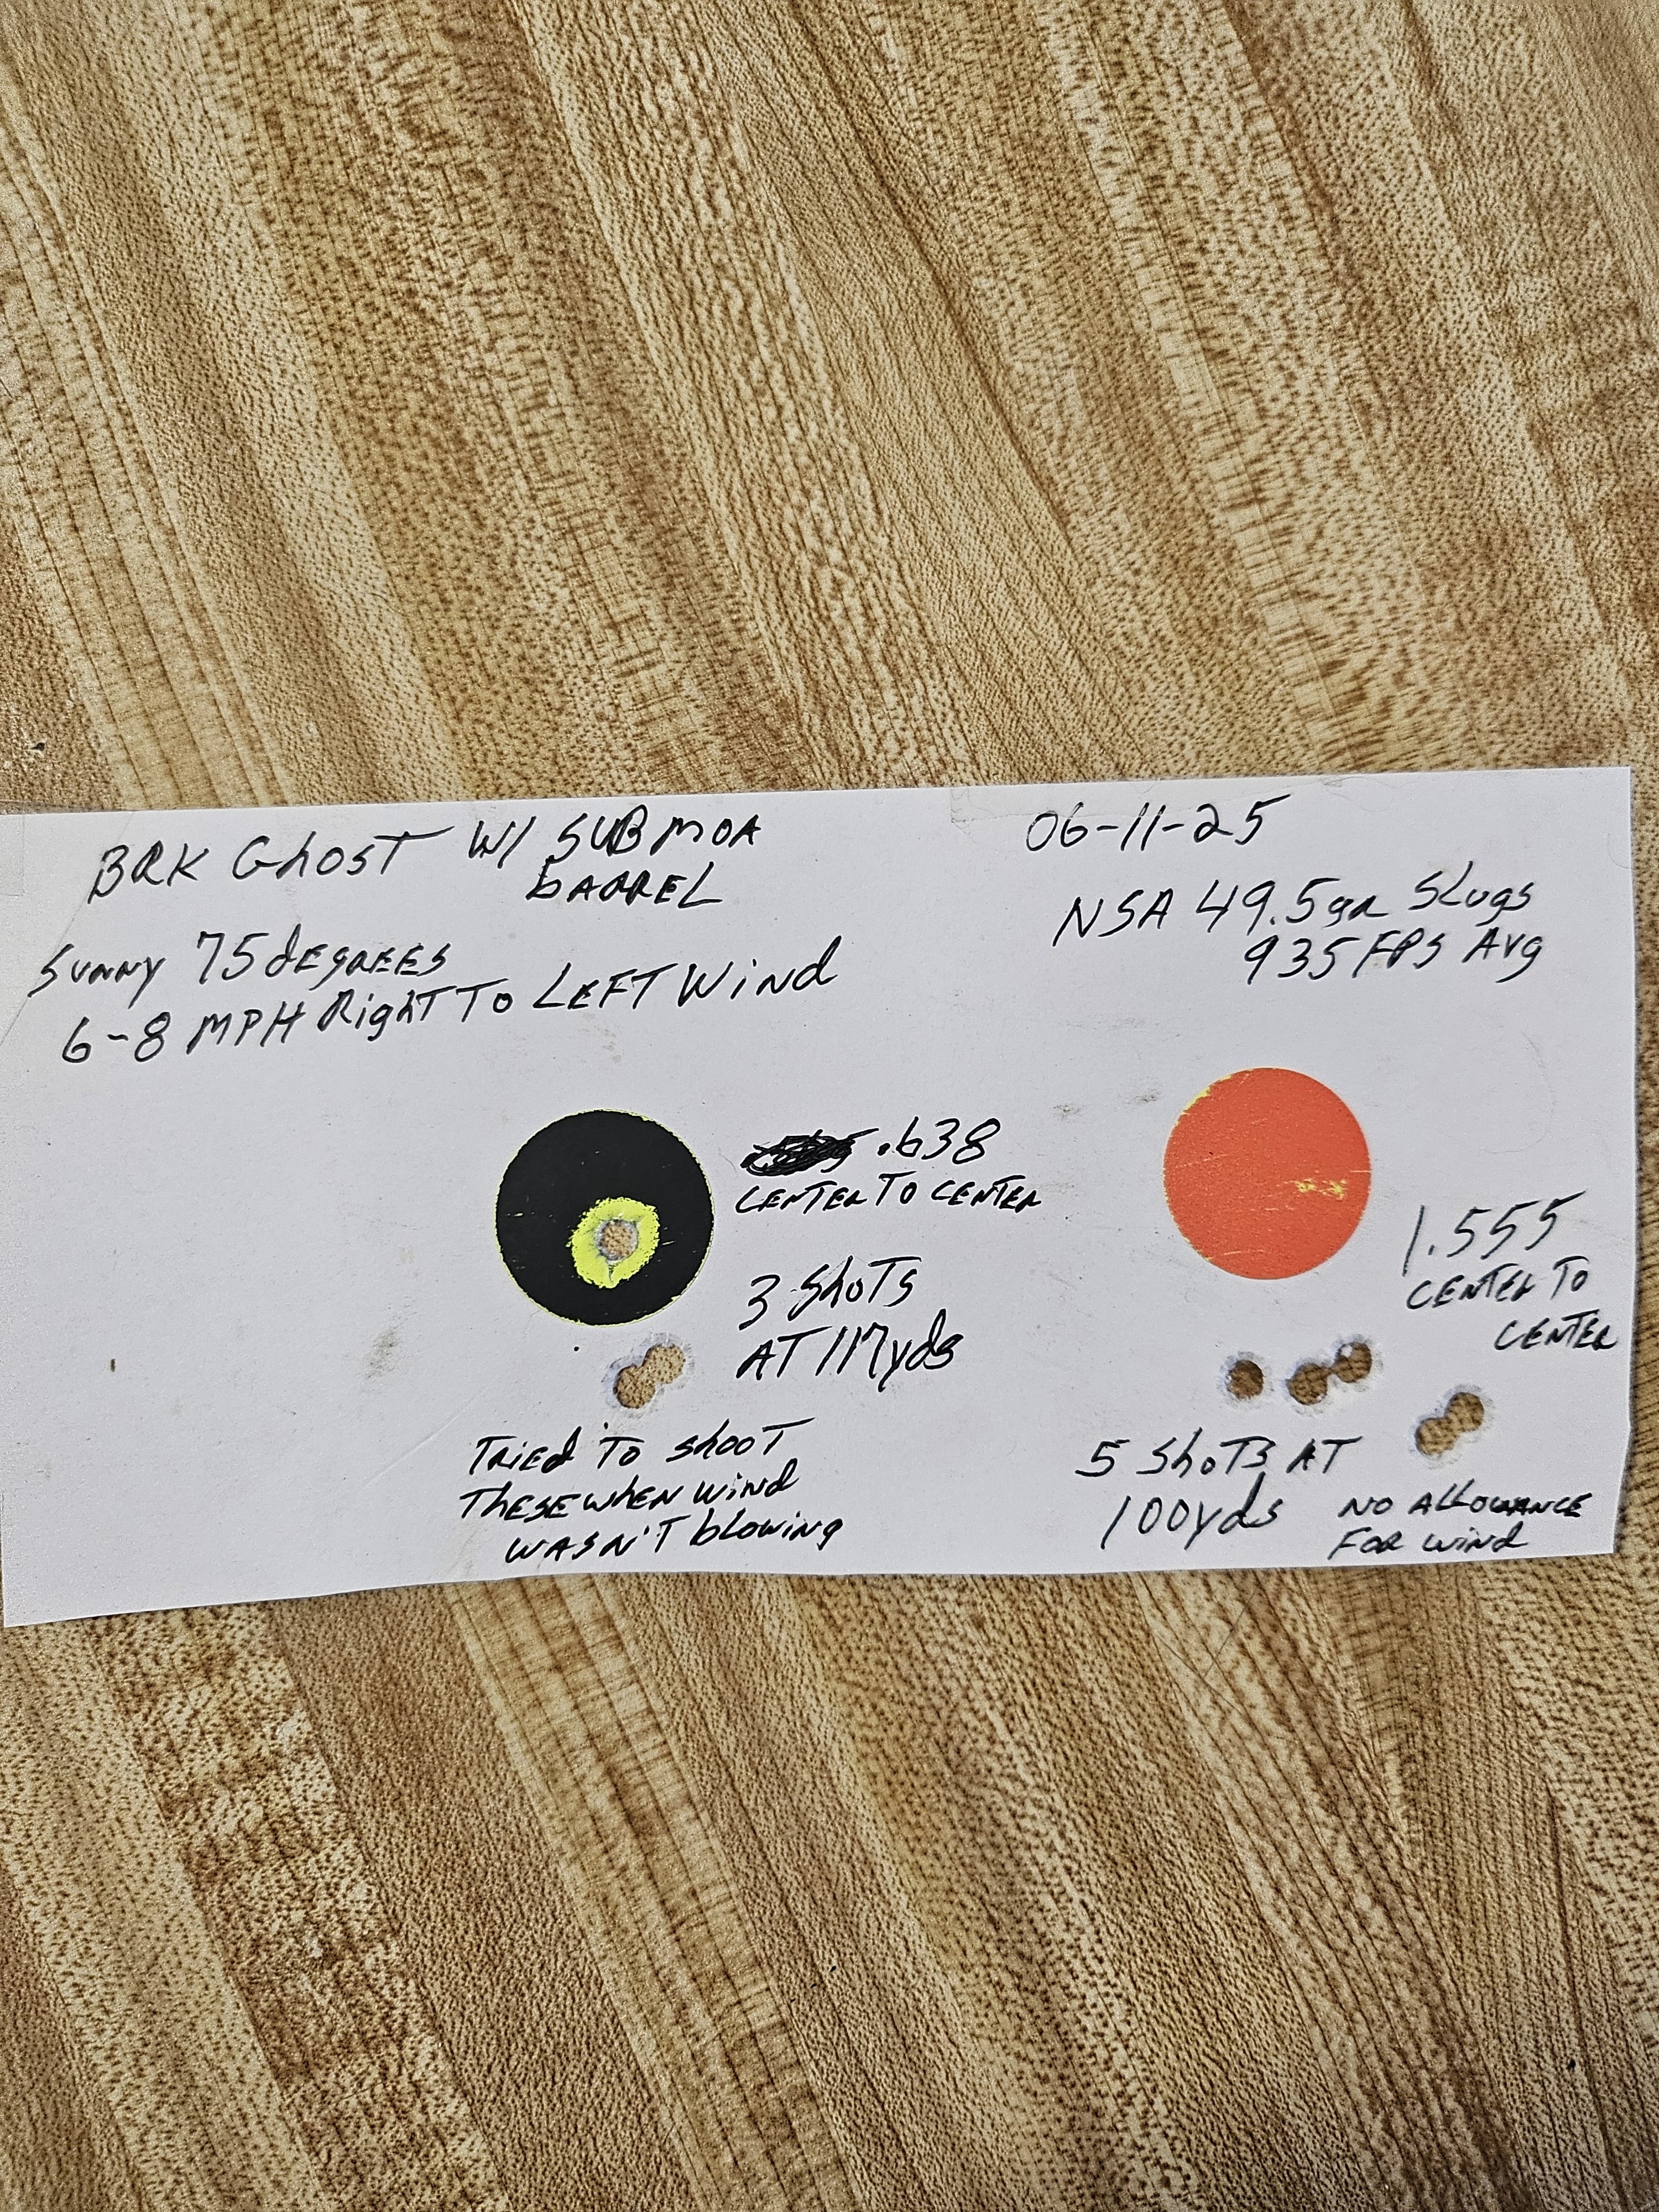 BRK GhOST W/ SUBMOA
bARREL
06-11-25
SUNNY 75 dEgREES
6-8 MPH RighT TO LEFT Wind
NSA 49.5gR Slugs
935 FPS Avg
.638
CENTER TO CENTER
3 ShoTs
AT 117yds
TRiEd TO shooT
ThESE whEN wiNd
wASN'T blowiNg
1.555
CENTER TO
CENTER
5 ShoTs AT
100yds
NO AllOWANCE
FOR wiNd